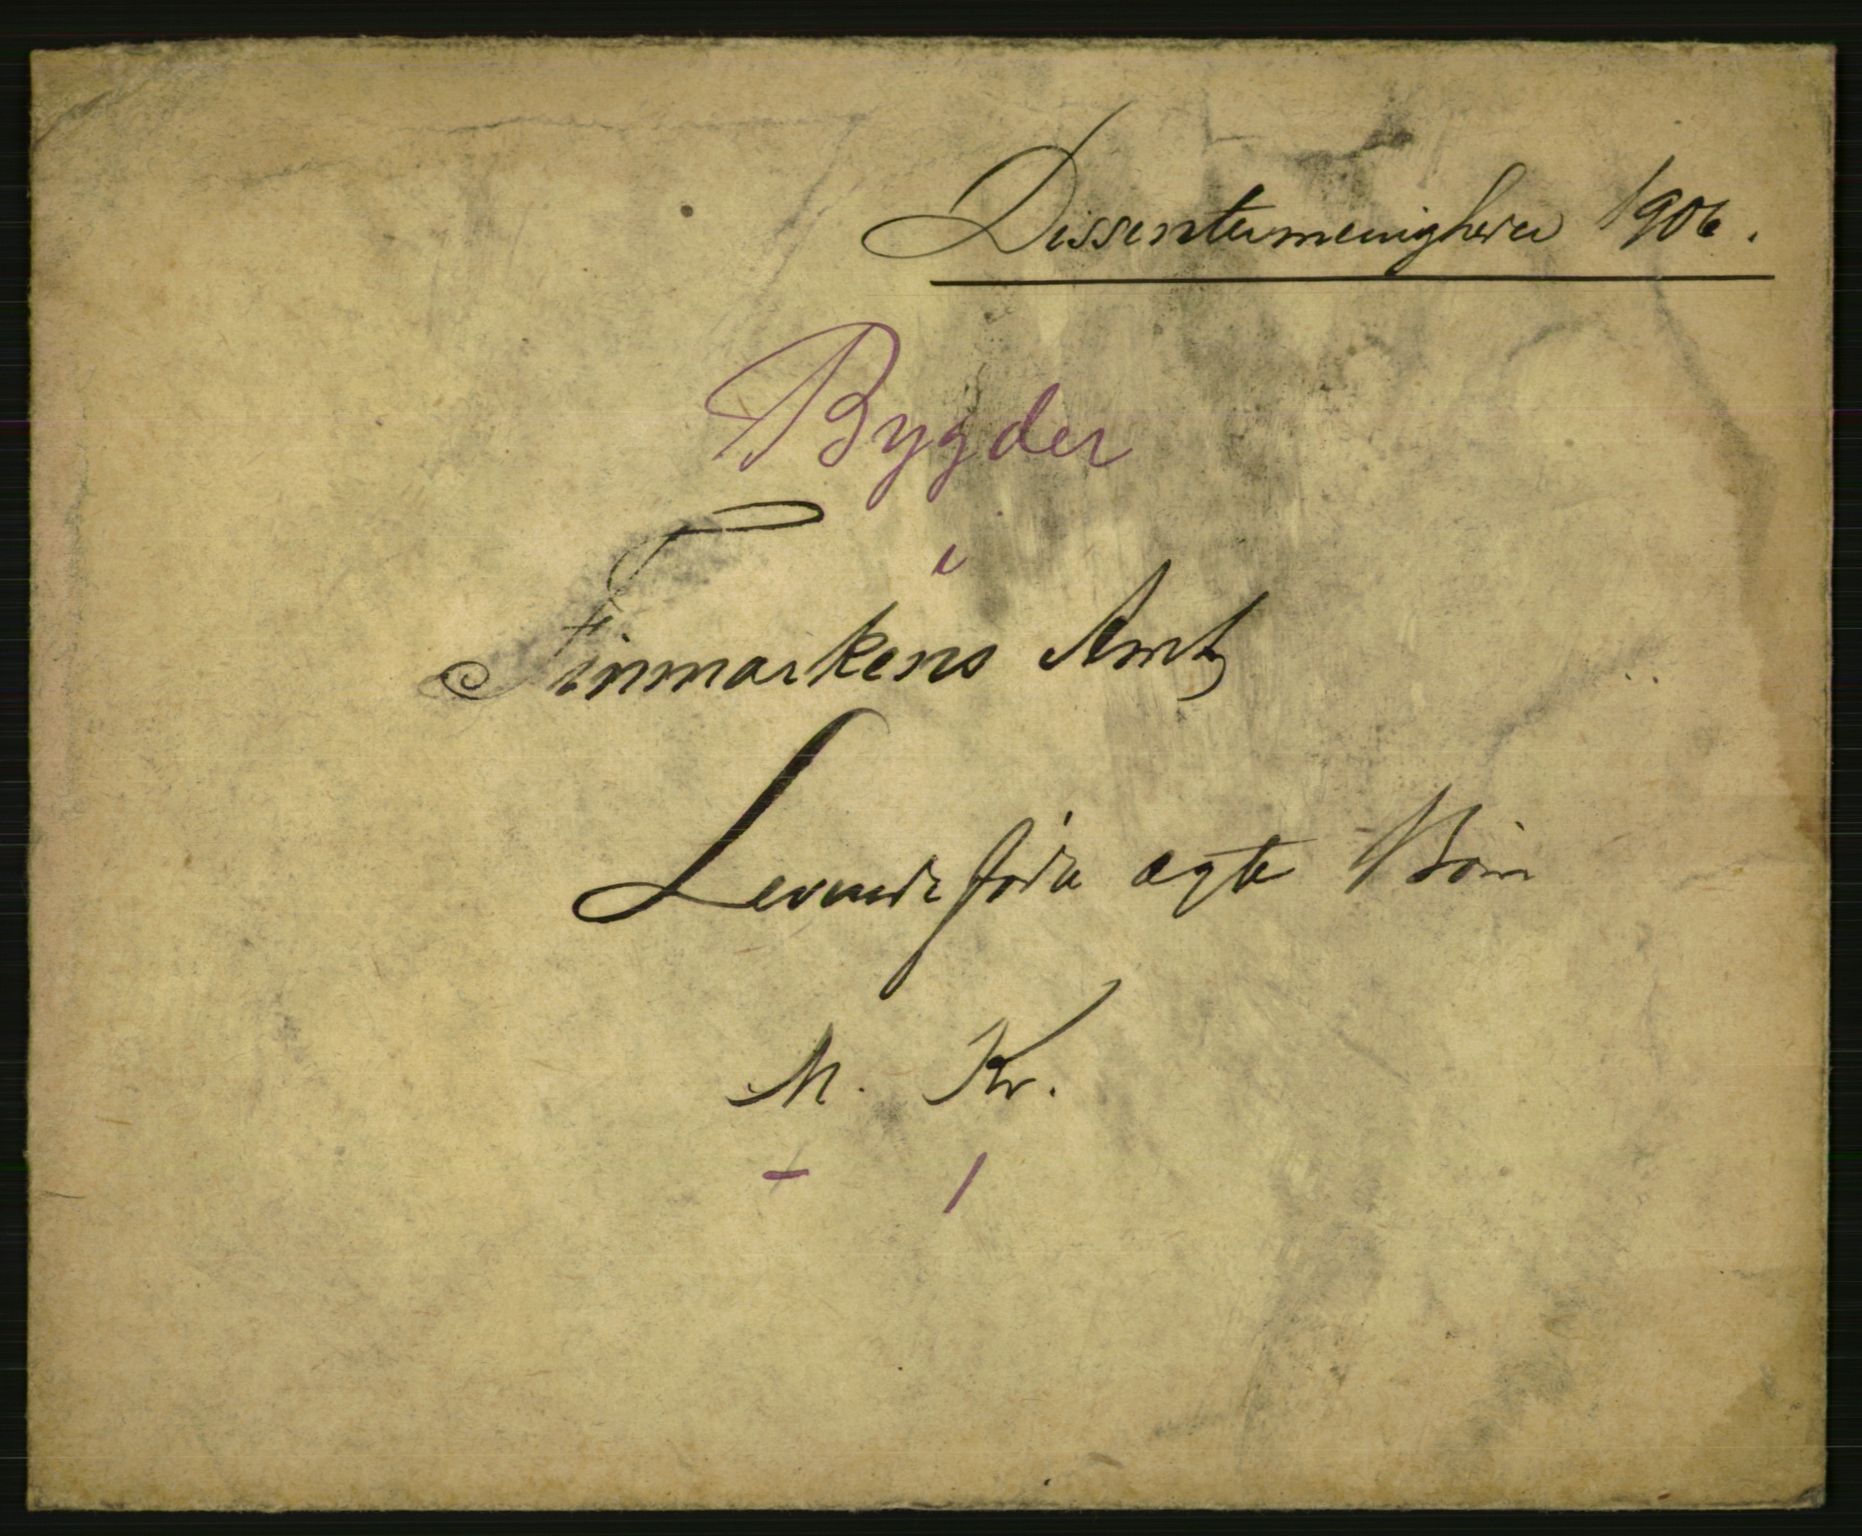 Dissentermenigheder 1906.
Bygder
i
Finmarkens Amt
Levendefødte ægte Børn
M. Kr.
- 1